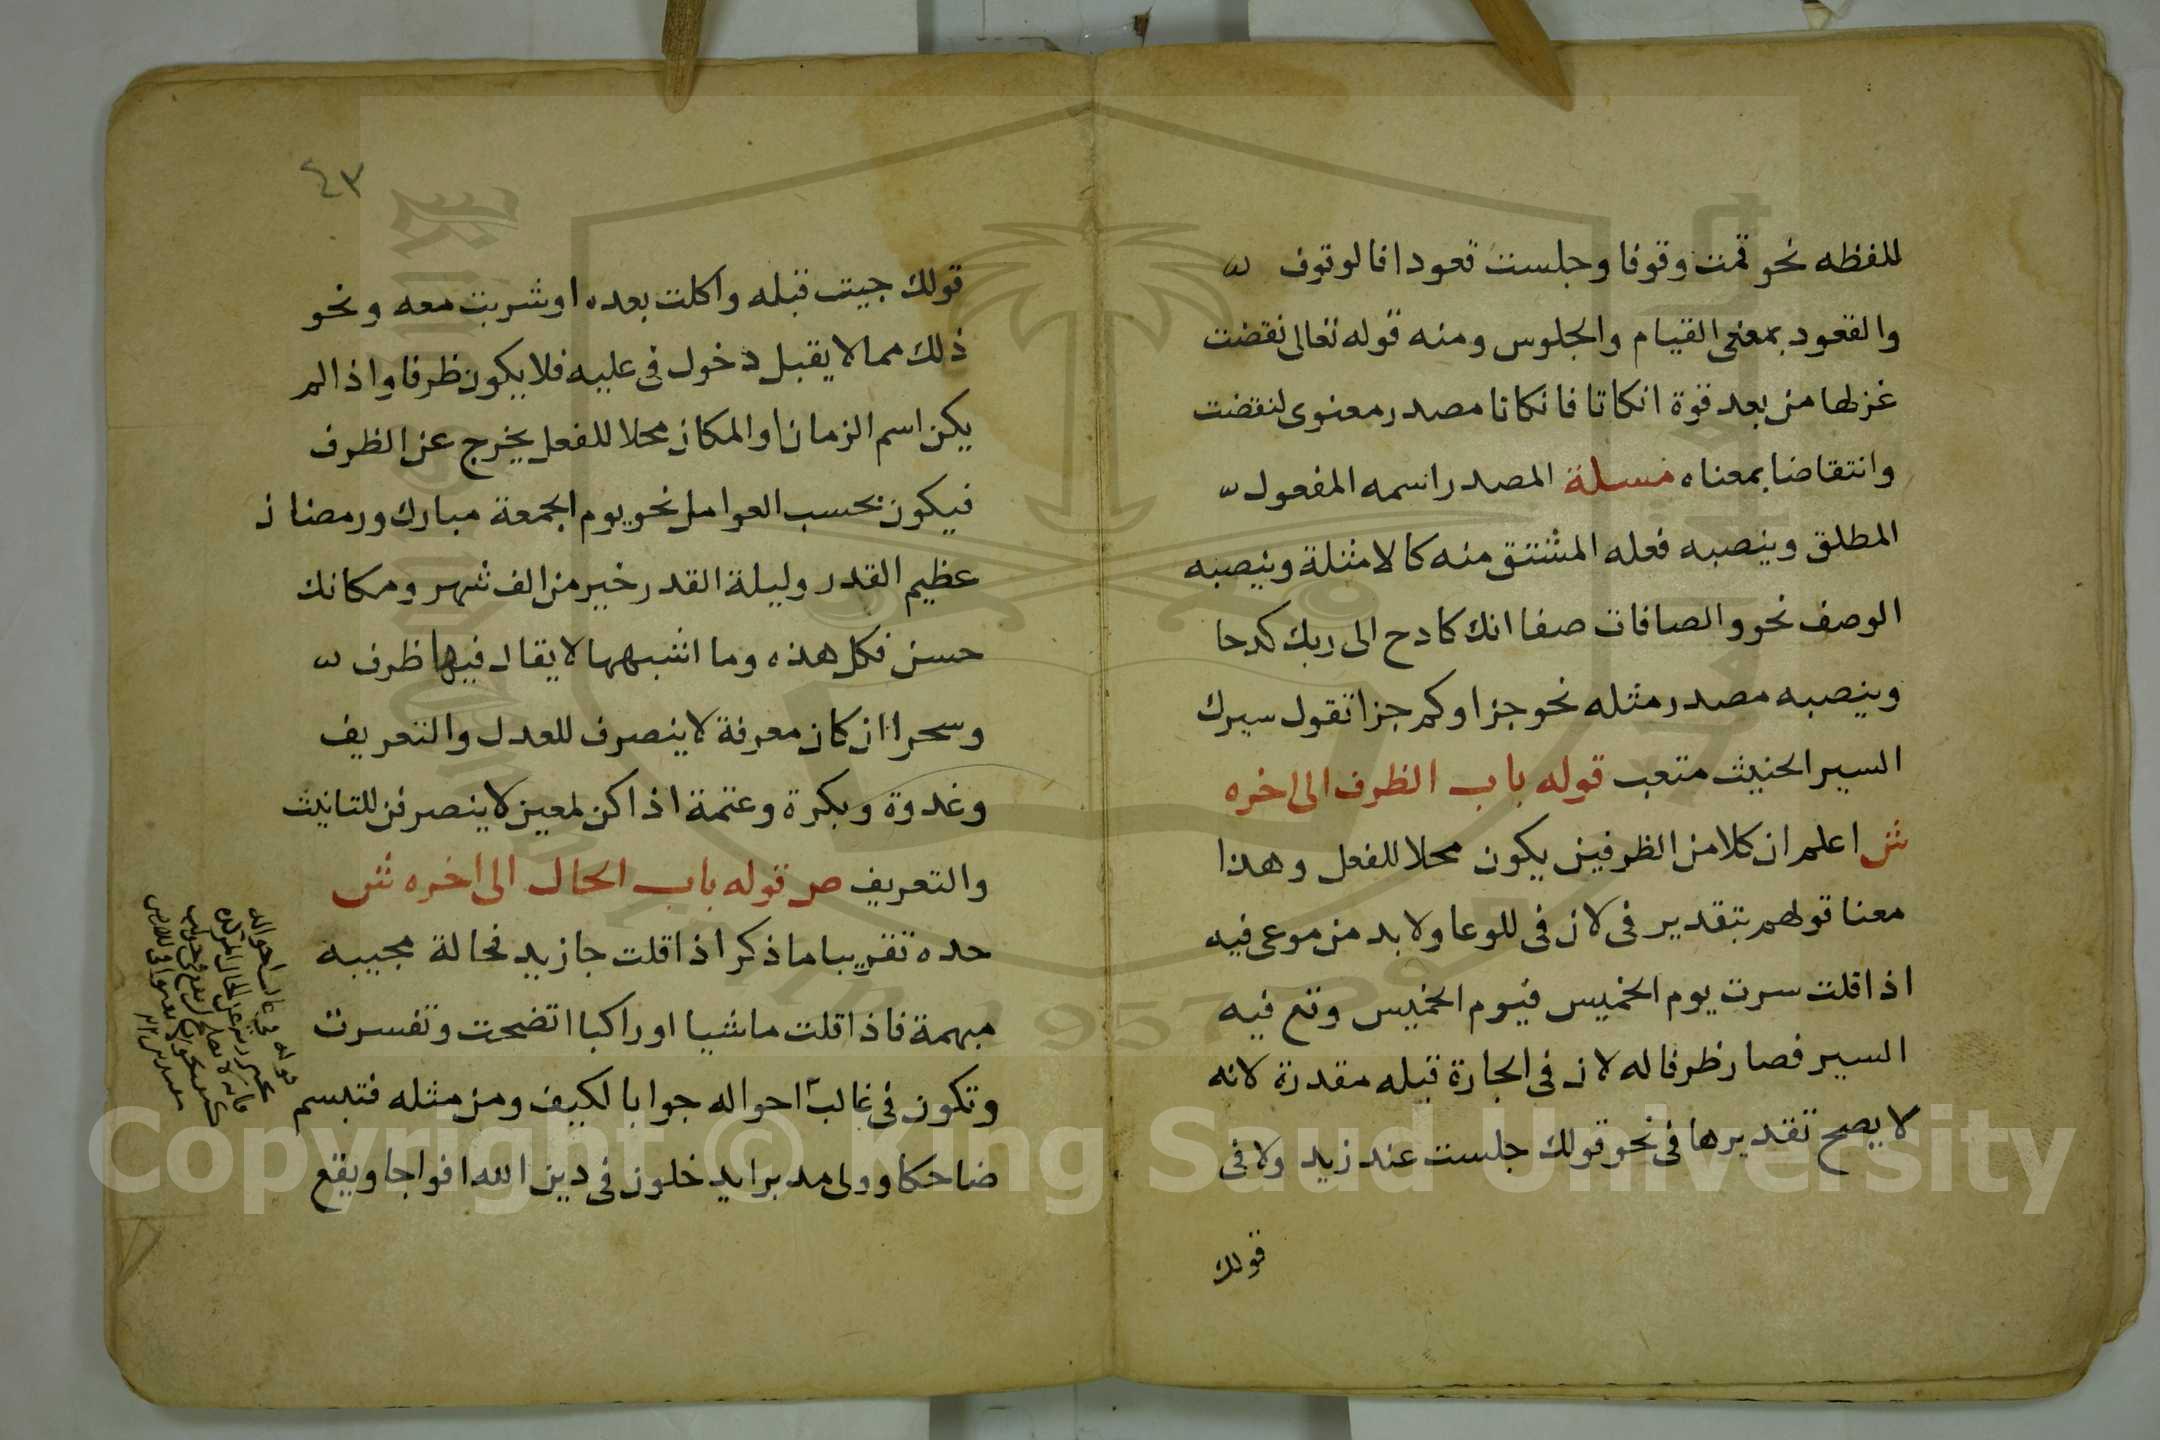 للفظه نحو قمت وقوفا وجلست قعودا فالوقوف
والقعود بمعنى القيام والجلوس ومنه قوله تعالى نقضت
غزلها من بعد قوة انكاثا فانكاثا مصدر معنوى لنقضت
وانتقاضا بمعناه مسلة المصدر اسمه المفعول
المطلق وينصبه فعله المشتق منه كالامثلة وينصبه
الوصف نحو والصافات صفا انك كادح الى ربك كدحا
وينصبه مصدر مثله نحو جزاوكم جزا تقول سيرك
السير الحثيث متعب قوله باب الظرف الى اخره
ش اعلم ان كلا من الظرفين يكون محلا للفعل وهذا
معنا قولهم بتقدير فى لان فى للوعا ولا بد من موعى فيه
اذا قلت سرت يوم الخميس فيوم الخميس وقع فيه
السير فصار ظرفا له لان فى الجارة قبله مقدرة لانه
لا يصح تقديرها فى نحو قولك جلست عند زيد ولا فى
قولك
٤٣
قولك جيت قبله واكلت بعده او شربت معه ونحو
ذلك مما لا يقبل دخول فى عليه فلا يكون ظرفا واذا لم
يكن اسم الزمان او المكان محلا للفعل يخرج عن الظرف
فيكون بحسب العوامل نحو يوم الجمعة مبارك ورمضان
عظيم القدر وليلة القدر خير من الف شهر ومكانك
حسن فكل هذه وما اشبهها لا يقال فيها ظرف
وسحرا ان كان معرفة لا ينصرف للعدل والتعريف
وغدوة وبكرة وعتمة اذا كن لمعين لا ينصرفن للتانيث
والتعريف ص قوله باب الحال الى اخره ش
حده تقريبا ما ذكر اذا قلت جا زيد فحالة مجييه
مبهمة فاذا قلت ماشيا او راكبا اتضحت وتفسرت
وتكون فى غالب احواله جوابا لكيف ومن مثله فتبسم
ضاحكا وولى مدبرا يدخلون فى دين الله افواجا ويقع
قوله فى غالب احواله
Copyright © King Saud University
1957